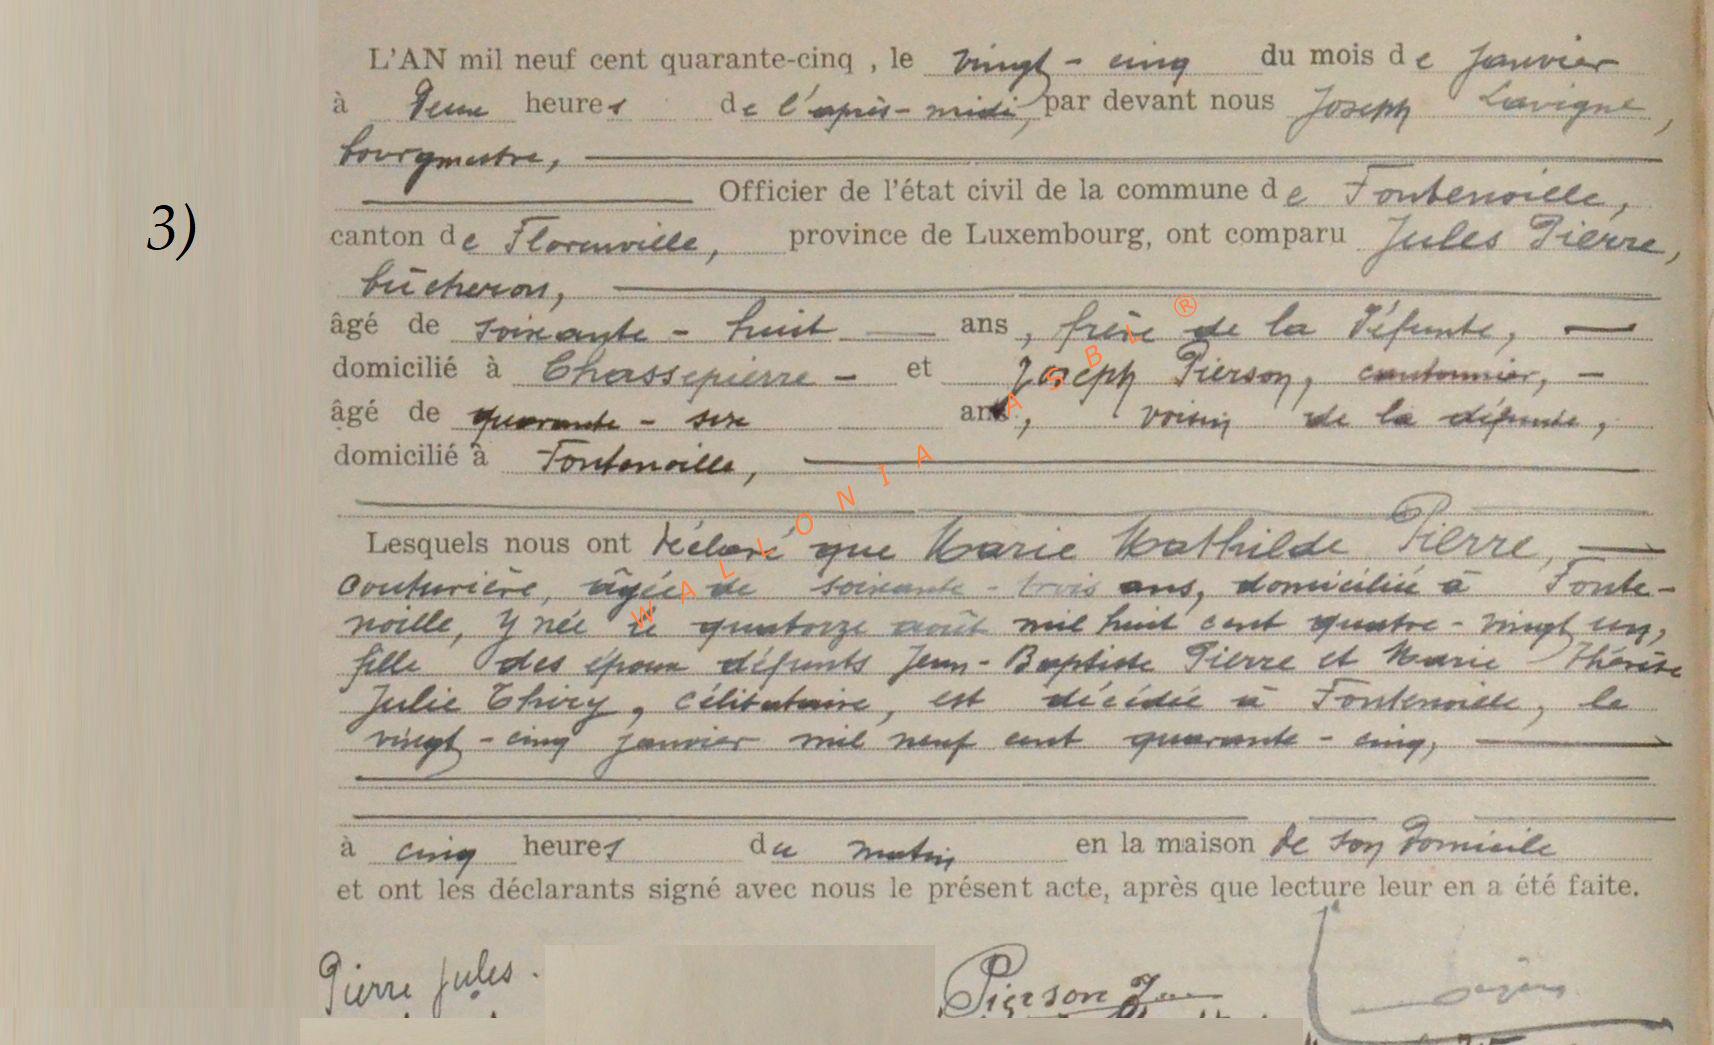 3)
L'AN mil neuf cent quarante-cinq , le vingt - cinq du mois de Janvier
à Deux heures de l'après-midi, par devant nous Joseph Lavigne,
bourgmestre,
Officier de l'état civil de la commune de Fontenoille,
canton de Florenville, province de Luxembourg, ont comparu Jules Pierre,
bûcheron,
âgé de soixante - huit ans, frère de la Défunte,
domicilié à Chassepierre - et Joseph Pierson, cantonnier, -
âgé de quarante - six ans, voisin de la défunte,
domicilié à Fontenoille,
Lesquels nous ont déclaré que Marie Mathilde Pierre,
couturière, âgée de soixante - trois ans, domiciliée à Fonte-
noille, y née le quatorze août mil huit cent quatre - vingt un,
fille des époux défunts Jean-Baptiste Pierre et Marie Thérèse
Julie Thiry, célibataire, est décédée à Fontenoille, le
vingt - cinq janvier mil neuf cent quarante - cinq,
à cinq heures du matin en la maison de son Domicile
et ont les déclarants signé avec nous le présent acte, après que lecture leur en a été faite.
Pierre Jules.
Pierson J
WALLONIA ASBL ®